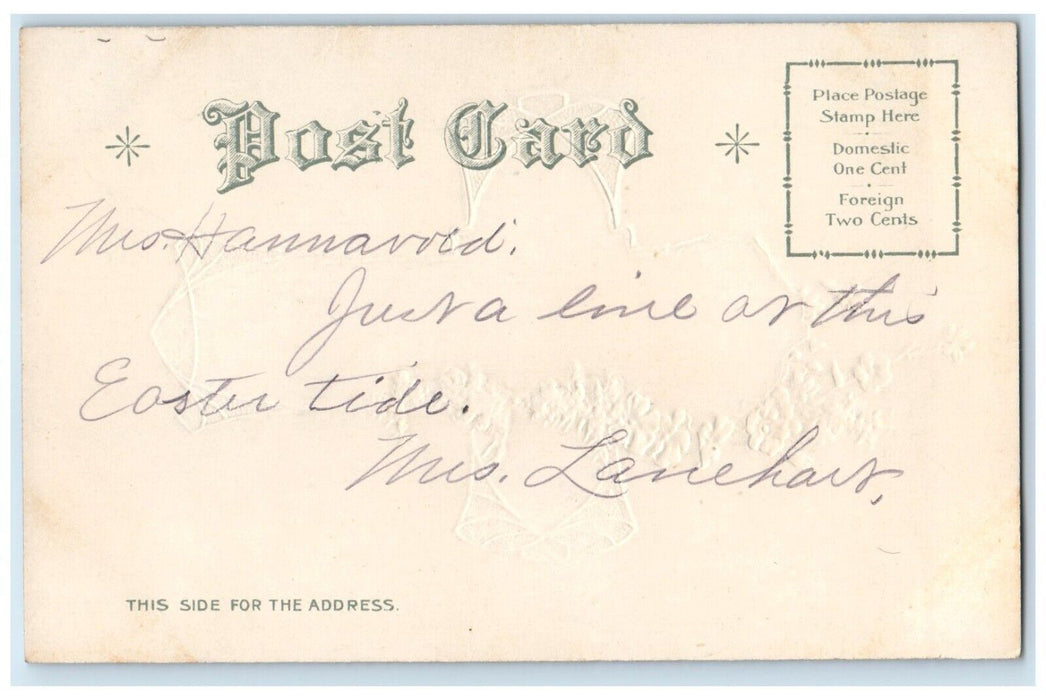 Post Card
Place Postage
Stamp Here
Domestic
One Cent
Foreign
Two Cents
Mrs. Hannavord.
Just a line at this
Easter tide.
Mrs. Lanehart,
THIS SIDE FOR THE ADDRESS.